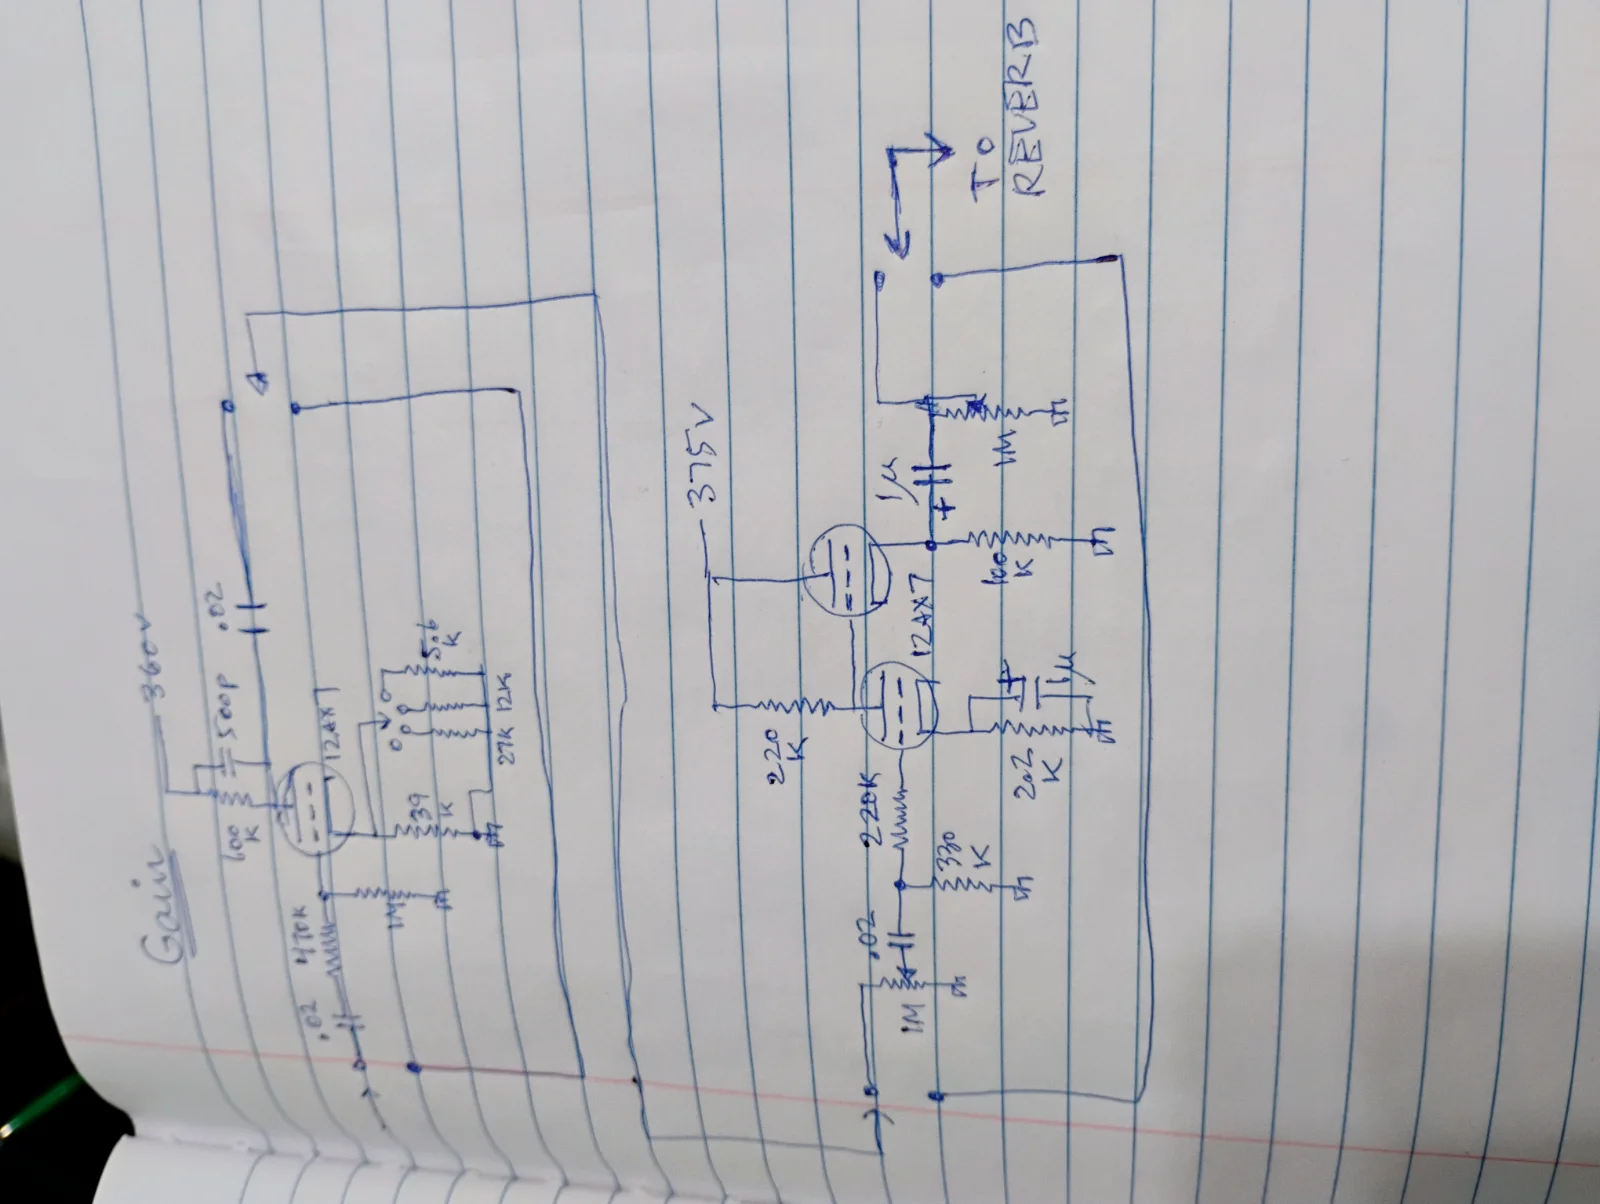 Gain
360V
100
K
500P
.02
.02
470K
12AX7
1M
39
K
27K
12K
5.6
K
375V
220
K
1µ
+
1M
TO
REVERB
12AX7
100
K
220K
.02
1M
330
K
2.2
K
+
1µ